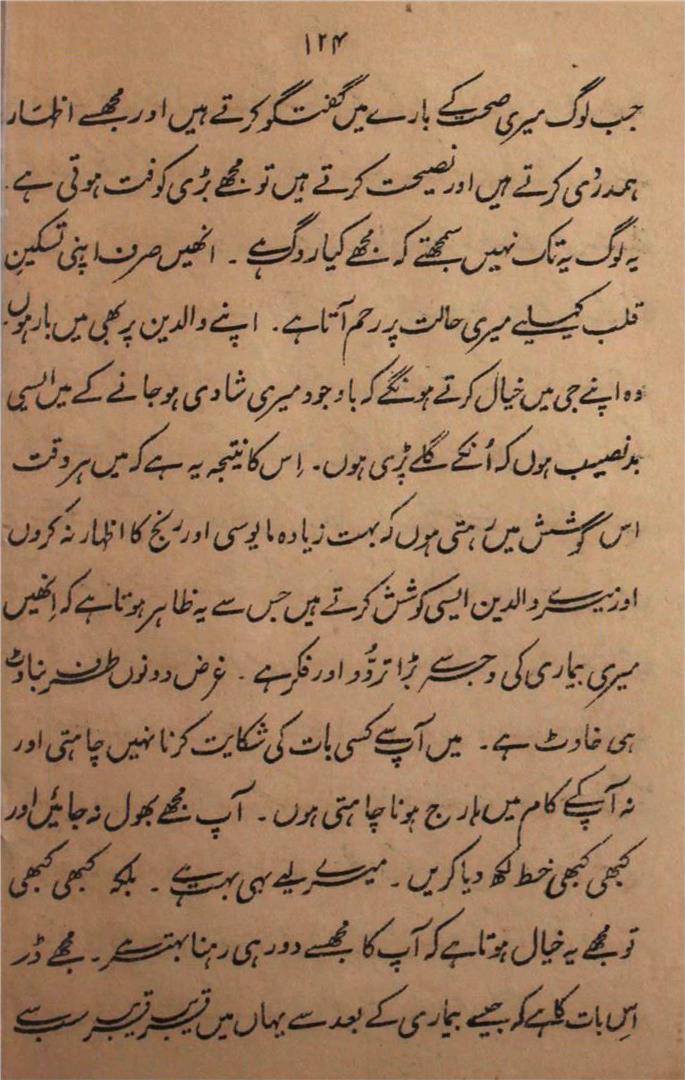 ۱۲۴
جب لوگ میری صحت کے بارے میں گفتگو کرتے ہیں اور مجھسے اظہار
ہمدردی کرتے ہیں اور نصیحت کرتے ہیں تو مجھے بڑی کوفت ہوتی ہے۔
یہ لوگ یہ تک نہیں سمجھتے کہ مجھے کیا روگ ہے ۔ انھیں صرف اپنی تسکینِ
قلب کیلیے میری حالت پر رحم آتا ہے۔ اپنے والدین پر بھی میں بار ہوں۔
وہ اپنے جی میں خیال کرتے ہونگے کہ باوجود میری شادی ہو جانے کے میں ایسی
بدنصیب ہوں کہ اُنکے گلے پڑی ہوں۔ اِس کا نتیجہ یہ ہے کہ میں ہر وقت
اس کوشش میں رہتی ہوں کہ بہت زیادہ مایوسی اور رنج کا اظہار نہ کروں
اور میرے والدین ایسی کوشش کرتے ہیں جس سے یہ ظاہر ہوتا ہے کہ اِنھیں
میری بیماری کی وجہ سے بڑا تردُّد اور فکر ہے ۔ غرض دونوں طرف بناوٹ
ہی بناوٹ ہے۔ میں آپ سے کسی بات کی شکایت کرنا نہیں چاہتی اور
نہ آپ کے کام میں ہارج ہونا چاہتی ہوں ۔ آپ مجھے بھول نہ جائیں اور
کبھی کبھی خط لکھ دیا کریں ۔ میرے لیے یہی بہت ہے ۔ بلکہ کبھی کبھی
تو مجھے یہ خیال ہوتا ہے کہ آپ کا مجھسے دور ہی رہنا بہتر ہے ۔ مجھے ڈر
اِس بات کا ہے کہ جیسے بیماری کے بعد سے یہاں میں قریب قریب سب سے